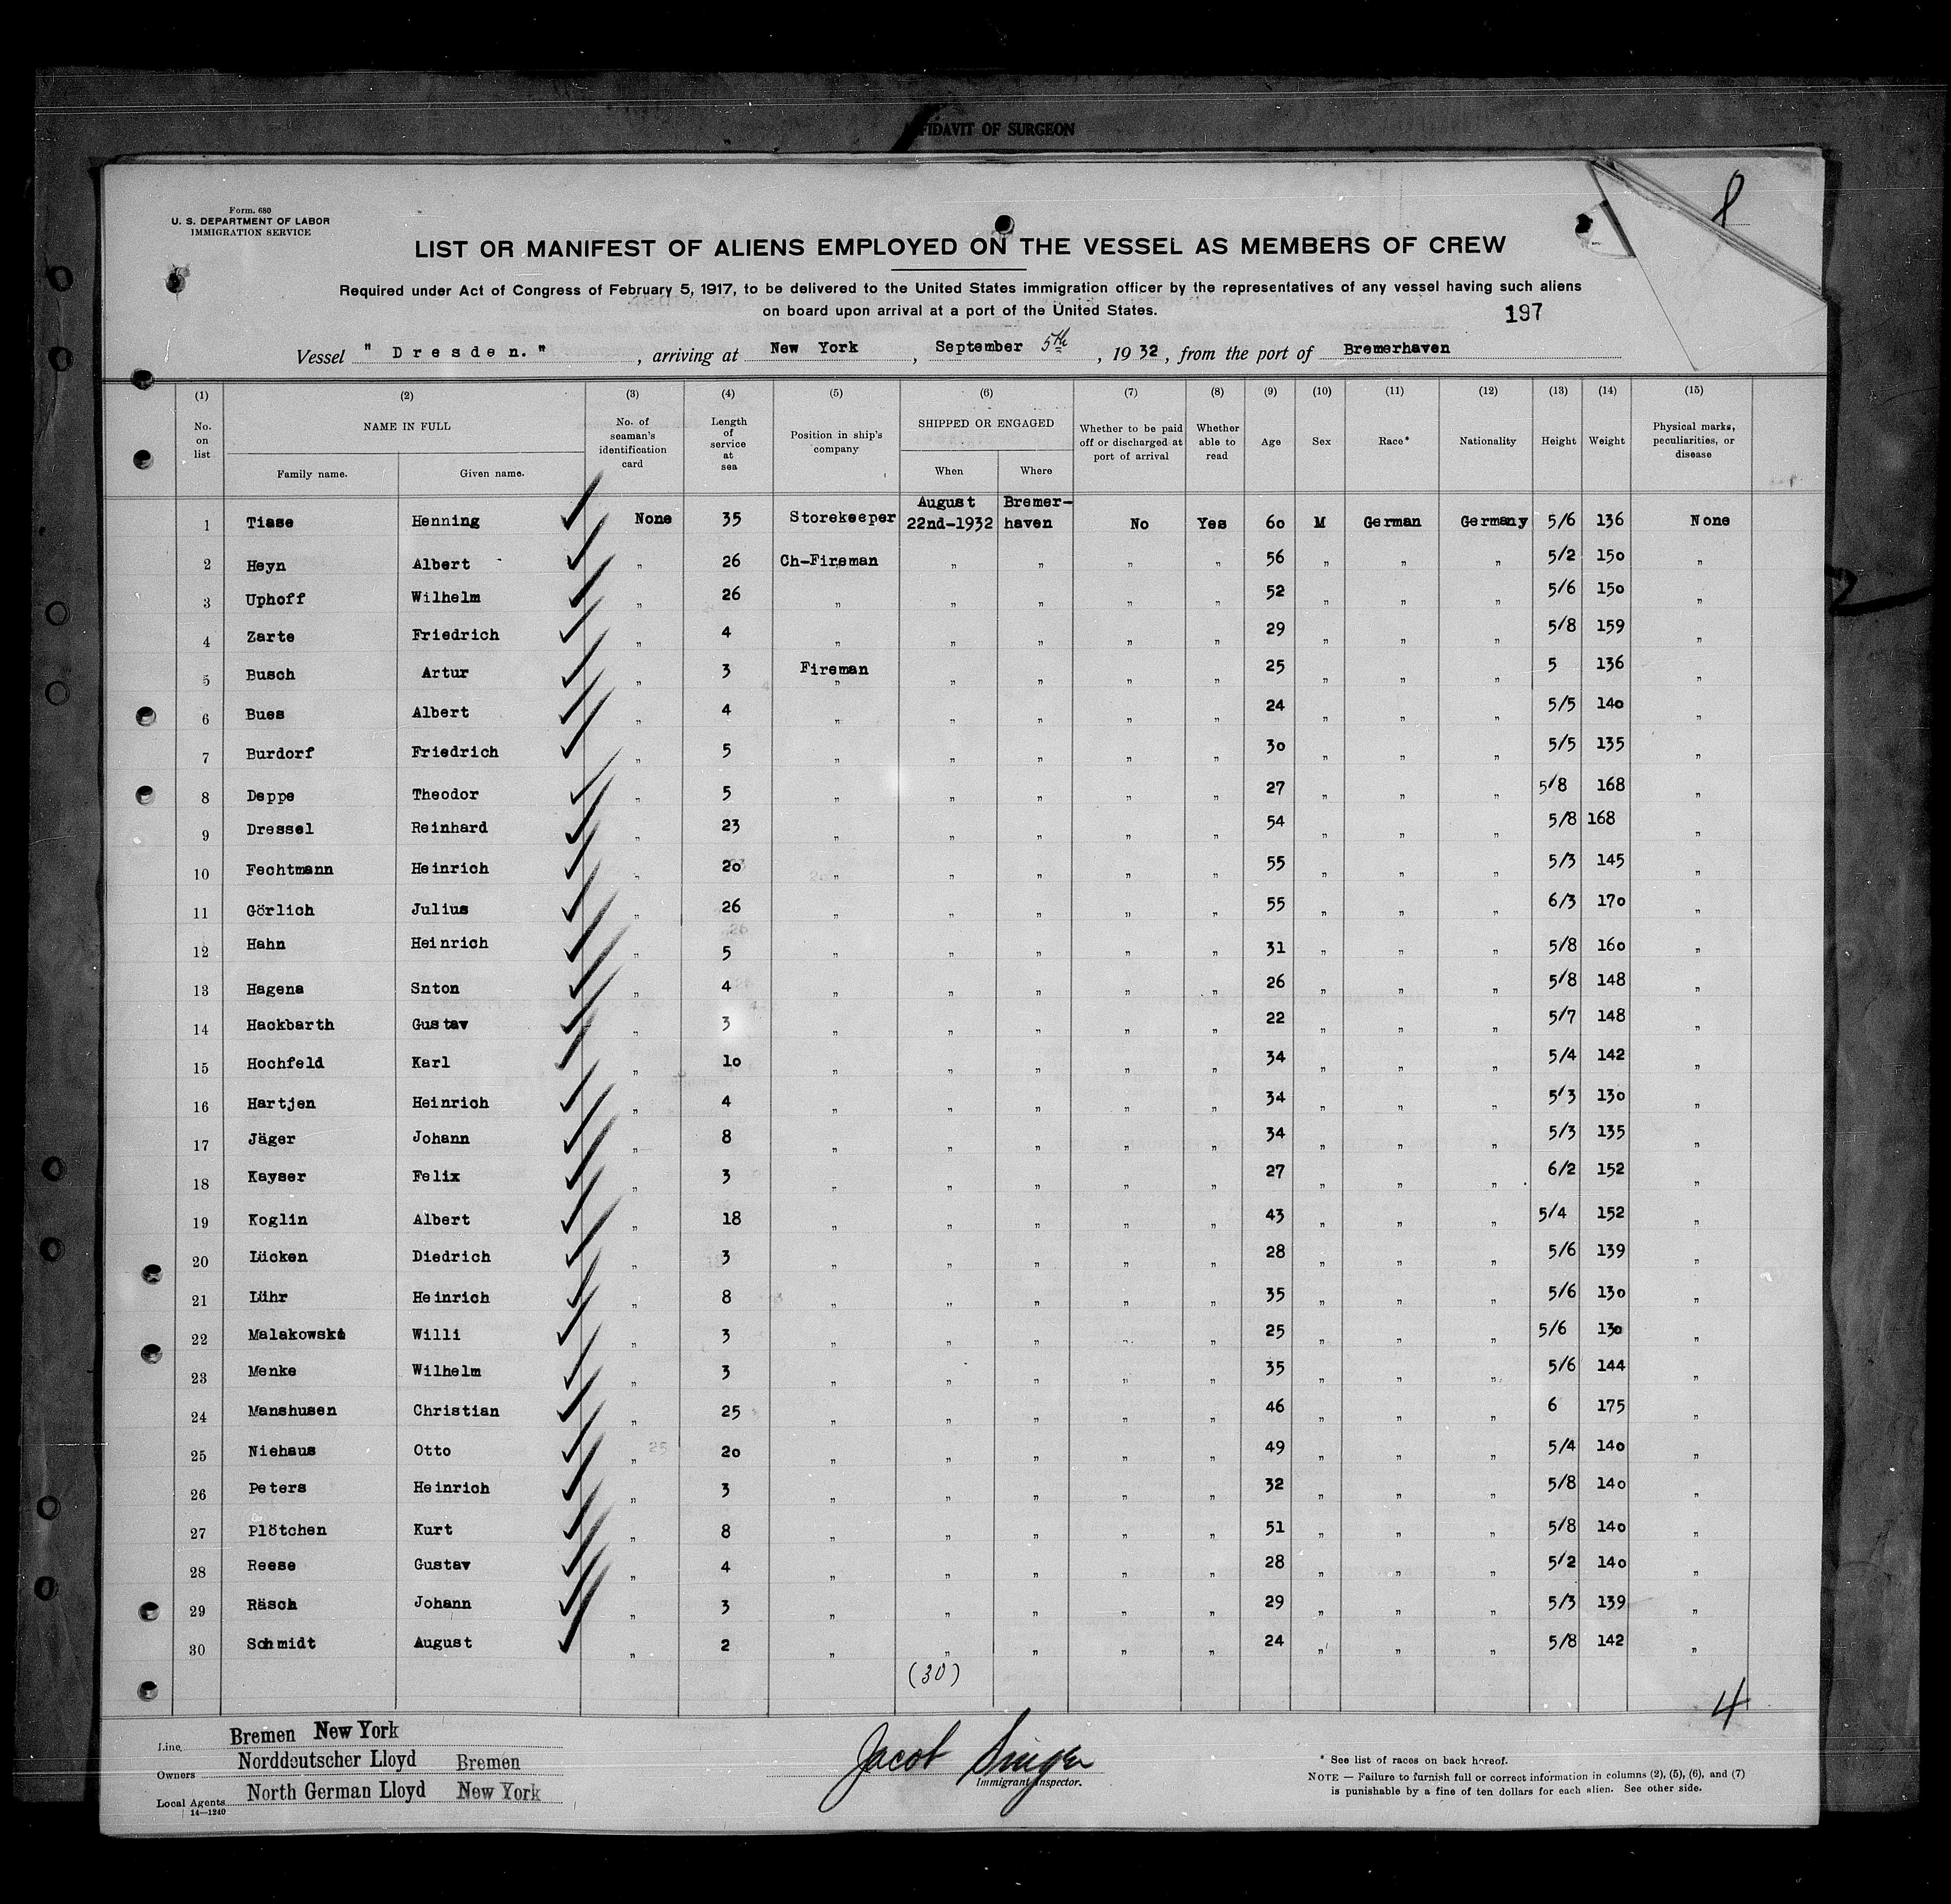 AFFIDAVIT OF SURGEON
Form. 680
U. S. DEPARTMENT OF LABOR
IMMIGRATION SERVICE
LIST OR MANIFEST OF ALIENS EMPLOYED ON THE VESSEL AS MEMBERS OF CREW
Required under Act of Congress of February 5, 1917, to be delivered to the United States immigration officer by the representatives of any vessel having such aliens
on board upon arrival at a port of the United States.
197
Vessel " Dresden. " , arriving at New York , September 5th , 1932 , from the port of Bremerhaven
(1) (2) (3) (4) (5) (6) (7) (8) (9) (10) (11) (12) (13) (14) (15)
No. on list NAME IN FULL Family name. Given name. No. of seaman's identification card Length of service at sea Position in ship's company SHIPPED OR ENGAGED When Where Whether to be paid off or discharged at port of arrival Whether able to read Age Sex Race* Nationality Height Weight Physical marks, peculiarities, or disease
1 Tiase Henning None 35 Storekeeper August 22nd-1932 Bremer-haven No Yes 60 M German Germany 5/6 136 None
2 Heyn Albert " 26 Ch-Fireman " " " " 56 " " " 5/2 150 "
3 Uphoff Wilhelm " 26 " " " " " 52 " " " 5/6 150 "
4 Zarte Friedrich " 4 " " " " " 29 " " " 5/8 159 "
5 Busch Artur " 3 Fireman " " " " 25 " " " 5 136 "
6 Bues Albert " 4 " " " " " 24 " " " 5/5 140 "
7 Burdorf Friedrich " 5 " " " " " 30 " " " 5/5 135 "
8 Deppe Theodor " 5 " " " " " 27 " " " 5/8 168 "
9 Dressel Reinhard " 23 " " " " " 54 " " " 5/8 168 "
10 Fechtmann Heinrich " 20 " " " " " 55 " " " 5/3 145 "
11 Görlich Julius " 26 " " " " " 55 " " " 6/3 170 "
12 Hahn Heinrich " 5 " " " " " 31 " " " 5/8 160 "
13 Hagena Snton " 4 " " " " " 26 " " " 5/8 148 "
14 Hackbarth Gustav " 3 " " " " " 22 " " " 5/7 148 "
15 Hochfeld Karl " 10 " " " " " 34 " " " 5/4 142 "
16 Hartjen Heinrich " 4 " " " " " 34 " " " 5/3 130 "
17 Jäger Johann " 8 " " " " " 34 " " " 5/3 135 "
18 Kayser Felix " 3 " " " " " 27 " " " 6/2 152 "
19 Koglin Albert " 18 " " " " " 43 " " " 5/4 152 "
20 Lücken Diedrich " 3 " " " " " 28 " " " 5/6 139 "
21 Lühr Heinrich " 8 " " " " " 35 " " " 5/6 130 "
22 Malakowski Willi " 3 " " " " " 25 " " " 5/6 130 "
23 Menke Wilhelm " 3 " " " " " 35 " " " 5/6 144 "
24 Manshusen Christian " 25 " " " " " 46 " " " 6 175 "
25 Niehaus Otto " 20 " " " " " 49 " " " 5/4 140 "
26 Peters Heinrich " 3 " " " " " 32 " " " 5/8 140 "
27 Plötchen Kurt " 8 " " " " " 51 " " " 5/8 140 "
28 Reese Gustav " 4 " " " " " 28 " " " 5/2 140 "
29 Räsch Johann " 3 " " " " " 29 " " " 5/3 139 "
30 Schmidt August " 2 " " " " " 24 " " " 5/8 142 "
(30)
4
Line Bremen New York
Owners Norddeutscher Lloyd Bremen
Local Agents North German Lloyd New York
14—1240
Jacob Singer
Immigrant Inspector.
* See list of races on back hereof.
NOTE — Failure to furnish full or correct information in columns (2), (5), (6), and (7)
is punishable by a fine of ten dollars for each alien. See other side.